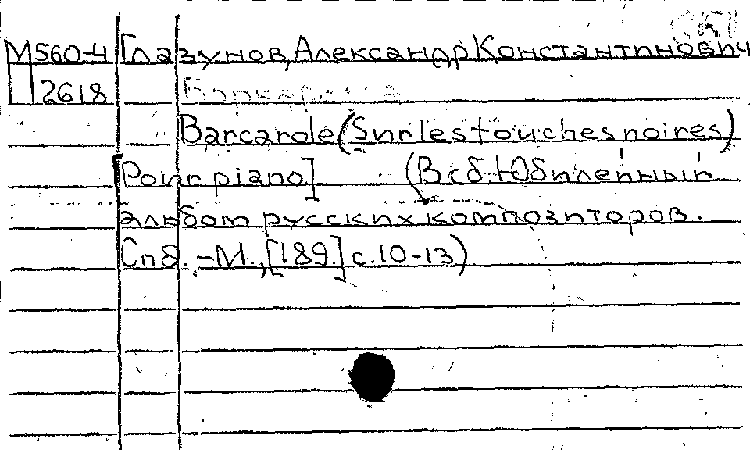 М560-4 Глазунов, Александр Константинович
П 2618 Баркаролла
Barcarole (Sur les touches noires)
[Pour piano] (В сб. Юбилейный
альбом русских композиторов.
Спб. – М., [189.] с. 10-13)